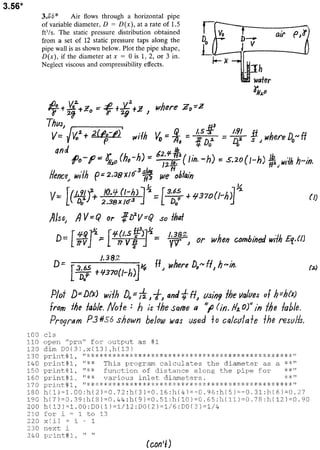 3.56*
3.56* Air flows through a horizontal pipe
of variable diameter, D = D(x), at a rate of 1.5
ft³/s. The static pressure distribution obtained
from a set of 12 static pressure taps along the
pipe wall is as shown below. Plot the pipe shape,
D(x), if the diameter at x = 0 is 1, 2, or 3 in.
Neglect viscous and compressibility effects.
D₀ V₀ D V air ρ, γ
x
h
water
γH₂O
p₀/γ + V₀²/2g + z₀ = p/γ + V²/2g + z , where z₀=z
Thus,
V = √(V₀² + 2(p₀-p)/ρ) with V₀ = Q/A₀ = 1.5 ft³/s / (π/4 D₀²) = 1.91/D₀² ft/s , where D₀~ft
and
p₀-p = γH₂O (h₀-h) = 62.4 lb/ft³ / 12 in/ft (1in.-h) = 5.20(1-h) lb/ft², with h~in.
Hence, with ρ=2.38x10⁻³ slugs/ft³ we obtain
V = [(1.91/D₀²)² + 10.4(1-h)/2.38x10⁻³]^½ = [3.65/D₀⁴ + 4370(1-h)]^½ (1)
Also, AV=Q or π/4 D²V=Q so that
D = [4Q/πV]^½ = [4(1.5 ft³/s)/π V ft/s]^½ = 1.382/√V , or when combined with Eq.(1)
D = 1.382/[3.65/D₀⁴ + 4370(1-h)]^¼ ft , where D₀~ft , h~in. (2)
Plot D=D(x) with D₀ = 1/12, 1/6, and 1/4 ft, using the values of h=h(x)
from the table. Note: h is the same as "p (in. H₂O)" in the table.
Program P3#56 shown below was used to calculate the results.
100 cls
110 open "prn" for output as #1
120 dim D0(3),x(13),h(13)
130 print#1, "**************************************************"
140 print#1, "** This program calculates the diameter as a **"
150 print#1, "** function of distance along the pipe for **"
160 print#1, "** various inlet diameters. **"
170 print#1, "**************************************************"
180 h(1)=1.00:h(2)=0.72:h(3)=0.16:h(4)=-0.96:h(5)=-0.31:h(6)=0.27
190 h(7)=0.39:h(8)=0.44:h(9)=0.51:h(10)=0.65:h(11)=0.78:h(12)=0.90
200 h(13)=1.00:D0(1)=1/12:D0(2)=1/6:D0(3)=1/4
210 for i = 1 to 13
220 x(i) = i - 1
230 next i
240 print#1, " "
(con't)